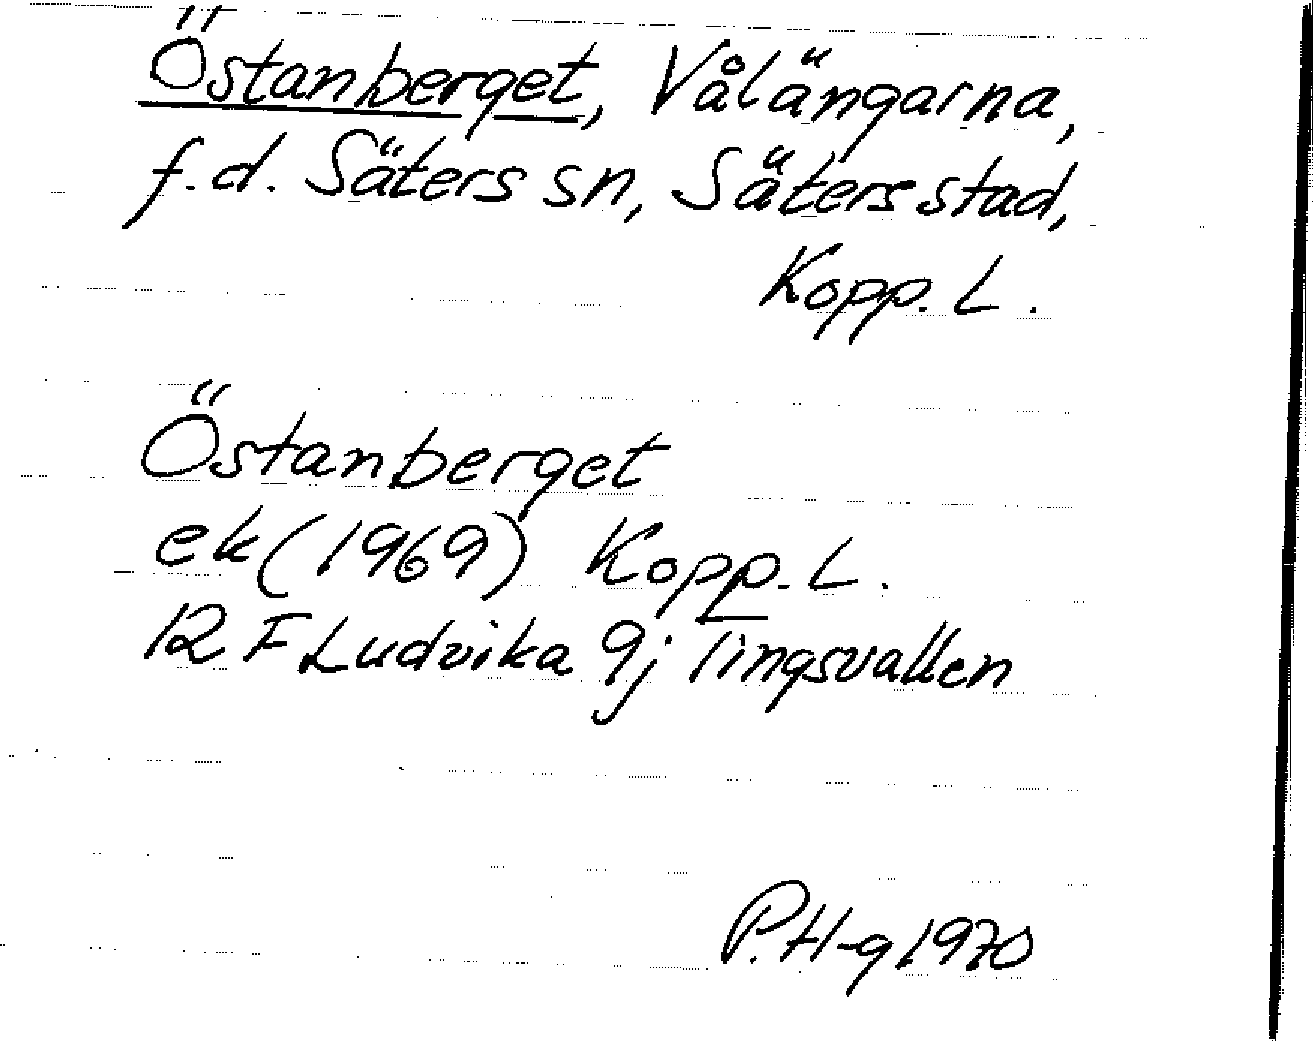 Östanberget, Vålängarna,
f.d. Säters sn, Säters stad,
Kopp. L.
Östanberget
ek (1969) Kopp. L.
12 F Ludvika 9j Tingsvallen
P.H-g 1970